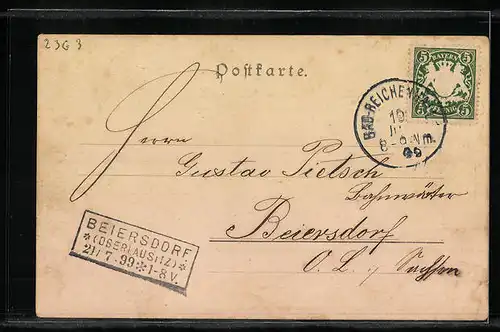 2363
Postkarte.
5 BAYERN 5
PFENNIG
BAD-REICHEN
19
8-9 Nm.
99
Herrn
Gustav Pietsch
Bahnwärter
Beiersdorf
O. L. i/ Sachsen
BEIERSDORF
*(OBERLAUSITZ)*
21/7.99*1-8V.